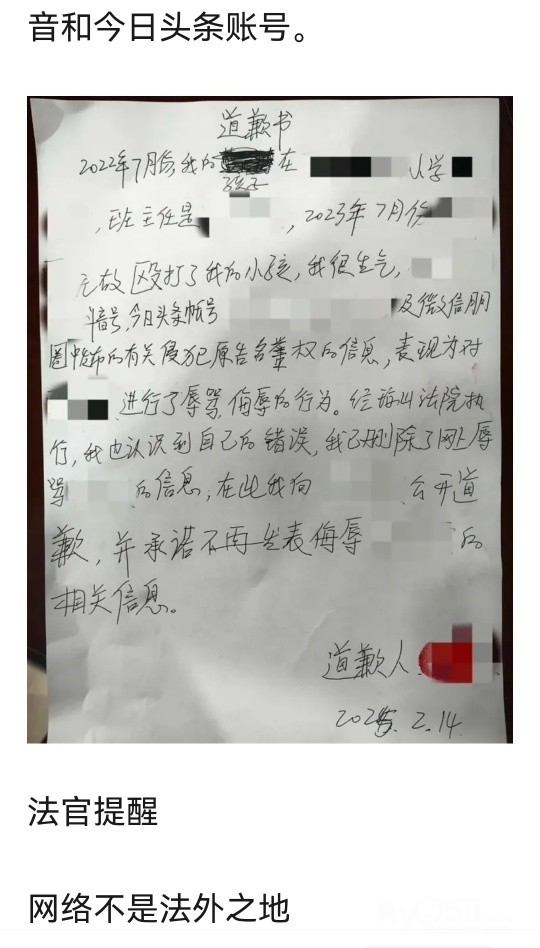 音和今日头条账号。
道歉书
2022年7月份,我的
孩子
在 小学
,班主任是 ,2023年7月份
无故殴打了我的小孩,我很生气,
抖音号,今日头条帐号 及微信朋
圈中发布的有关侵犯原告名誉权的信息,表现为对
进行了辱骂、侮辱的行为。经 法院执
行,我也认识到自己的错误,我已删除了网上辱
骂 的信息,在此我向 公开道
歉,并承诺不再发表侮辱 的
相关信息。
道歉人
2025.2.14
法官提醒
网络不是法外之地